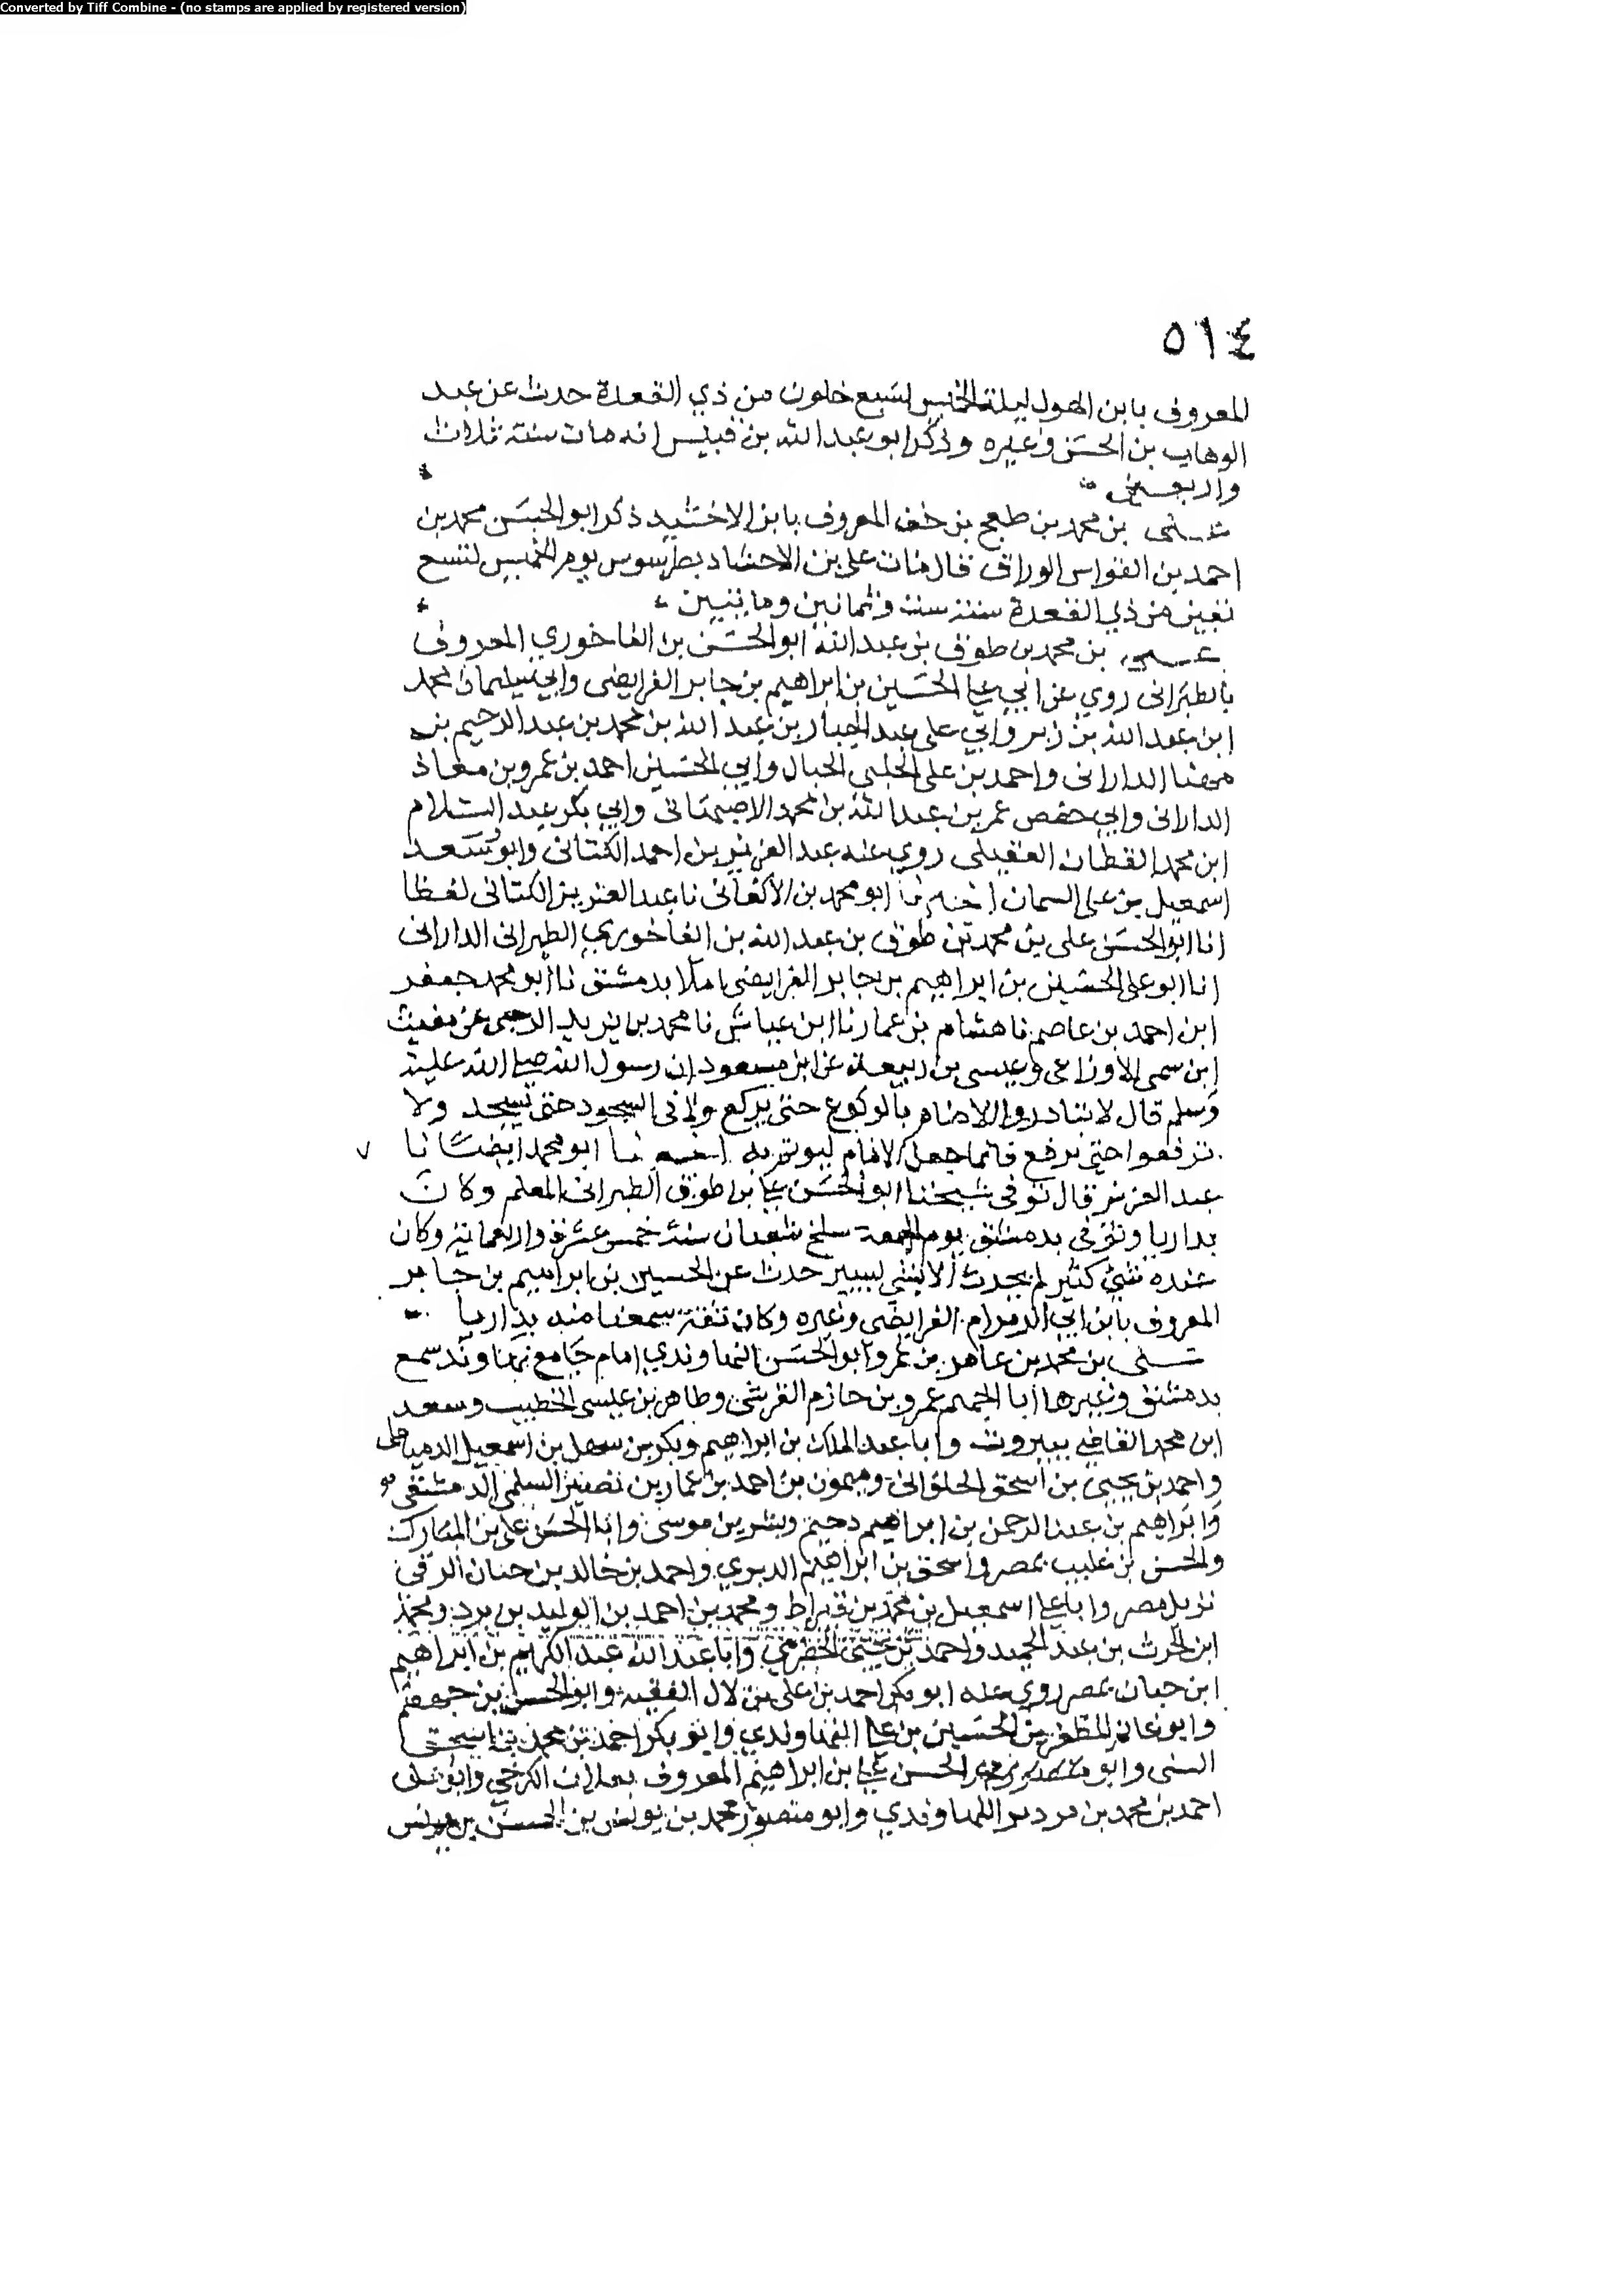 Converted by Tiff Combine - (no stamps are applied by registered version)
٥١٤
المعروف بابن الهول ليلة الخميس لسبع خلون من ذي القعدة حدث عن عبد
الوهاب بن الحسن وغيره وذكر ابو عبد الله بن قبيس انه مات سنة ثلاث
واربعين
علي بن محمد بن طغج بن جف المعروف بابن الاخشيد ذكر ابو الحسن محمد بن
احمد بن القواس الوراق قال مات علي بن الاخشاد بطرسوس يوم الخميس لتسع
بقين من ذي القعدة سنة ستة وثمانين ومايتين
علي بن محمد بن طوق بن عبد الله ابو الحسن بن الفاخوري المعروف
بالطبراني روي عن ابي علي الحسين بن ابراهيم بن جابر الفرايضي وابي سليمان محمد
ابن عبد الله بن زبر وابي علي عبد الجبار بن عبد الله بن محمد بن عبد الرحيم بن
مهنا الداراني واحمد بن علي الحلبي الحبال وابي الحسين احمد بن عمرو بن معاذ
الداراني وابي حفص عمر بن عبد الله بن محمد الاصبهاني وابي بكر عبد السلام
ابن محمد القطان العقيلي روي عنه عبد العزيز بن احمد الكتاني وابو سعد
اسمعيل بن علي السمان اخبرنا ابو محمد بن الاكفاني نا عبد العزيز الكتاني لفظا
انا ابو الحسن علي بن محمد بن طوق بن عبد الله بن الفاخوري الطبراني الداراني
انا ابو علي الحسين بن ابراهيم بن جابر الفرايضي املا بدمشق نا ابو محمد جعفر
ابن احمد بن عاصم نا هشام بن عمار نا ابن عياش نا محمد بن يزيد الرحبي عن مغيث
ابن سمي الاوزاعي وعيسى بن ربيعة عن ابن مسعود ان رسول الله صلى الله عليه
وسلم قال لا تبادروا الامام بالركوع حتى يركع ولا في السجود حتى يسجد ولا
ترفعوا حتى يرفع فانما جعل الامام ليوتم به اخبرنا ابو محمد ايضا نا
عبد العزيز قال توفي شيخنا ابو الحسن علي بن طوق الطبراني المعلم وكان
بداريا وتوفي بدمشق يوم الجمعة سلخ شعبان سنة خمس عشرة واربعماية وكان
عنده شي كثير لم يحدث الا بشي يسير حدث عن الحسين بن ابراهيم بن جابر
المعروف بابن ابي الزمزام الفرايضي وغيره وكان ثقة سمعنا منه بداريا
علي بن محمد بن عامر بن عمرو ابو الحسن النهاوندي امام جامع نهاوند سمع
بدمشق وغيرها ابا الجهم عمرو بن حازم القرشي وطاهر بن عيسى الخطيب وسعد
ابن محمد القاضي ببيروت وابا عبد الملك بن ابراهيم وبكر بن سهل بن اسمعيل الدمياطي
واحمد بن يحيى بن اسحق الحلواني وميمون بن احمد بن عمار بن نصير السلمي الدمشقي
وابراهيم بن عبد الرحمن بن ابراهيم دحيم وبشر بن موسى وابا الحسن علي بن المبارك
والحسن بن غليب بمصر واسحق بن ابراهيم الدبري واحمد بن خالد بن حنان الرقي
نزيل مصر وابا علي اسمعيل بن محمد بن قيراط ومحمد بن احمد بن الوليد بن برد ومحمد
ابن الحرث بن عبد الحميد واحمد بن يحيى الحضرمي وابا عبد الله عبد الكريم بن ابراهيم
ابن حبان بمصر روي عنه ابو بكر احمد بن علي بن لال الفقيه وابو الحسن بن جهضم
وابو غانم المظفر بن الحسين بن علي النهاوندي وابو بكر احمد بن محمد بن اسحق
السني وابو الحسن علي بن ابراهيم المعروف الكرخي وابو علي
احمد بن محمد بن النهاوندي وابو منصور محمد بن يونس بن الحسن بن يونس